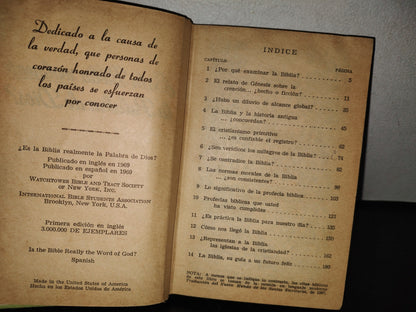 Dedicado a la causa de
la verdad, que personas de
corazón honrado de todos
los países se esfuerzan
por conocer
¿Es la Biblia realmente la Palabra de Dios?
Publicado en inglés en 1969
Publicado en español en 1969
por
WATCHTOWER BIBLE AND TRACT SOCIETY
OF NEW YORK, INC.
INTERNATIONAL BIBLE STUDENTS ASSOCIATION
Brooklyn, New York, U.S.A.
Primera edición en inglés
3.000.000 DE EJEMPLARES
Is the Bible Really the Word of God?
Spanish
Made in the United States of America
Hecho en los Estados Unidos de América
INDICE
CAPÍTULO PÁGINA
1 ¿Por qué examinar la Biblia? 5
2 El relato de Génesis sobre la
creación... ¿hecho o ficción? 11
3 ¿Hubo un diluvio de alcance global?
4 La Biblia y la historia antigua
... ¿concuerdan? 45
5 El cristianismo primitivo
... ¿es confiable el registro? 63
6 ¿Son verídicos los milagros de la Biblia? 74
7 ¿Se contradice la Biblia?
8 Las normas morales de la Biblia
... ¿son consistentes?
9 Lo significativo de la profecía bíblica
10 Profecías bíblicas que usted
ha visto cumplidas
11 ¿Es práctica la Biblia para nuestro día?
12 Cómo nos llegó la Biblia
13 ¿Representan a la Biblia
las iglesias de la cristiandad?
14 La Biblia, su guía a un futuro feliz
NOTA: A menos que se indique lo contrario, las citas bíblicas
de este libro se toman de la versión en lenguaje moderno
Traducción del Nuevo Mundo de las Santas Escrituras, de 1967.